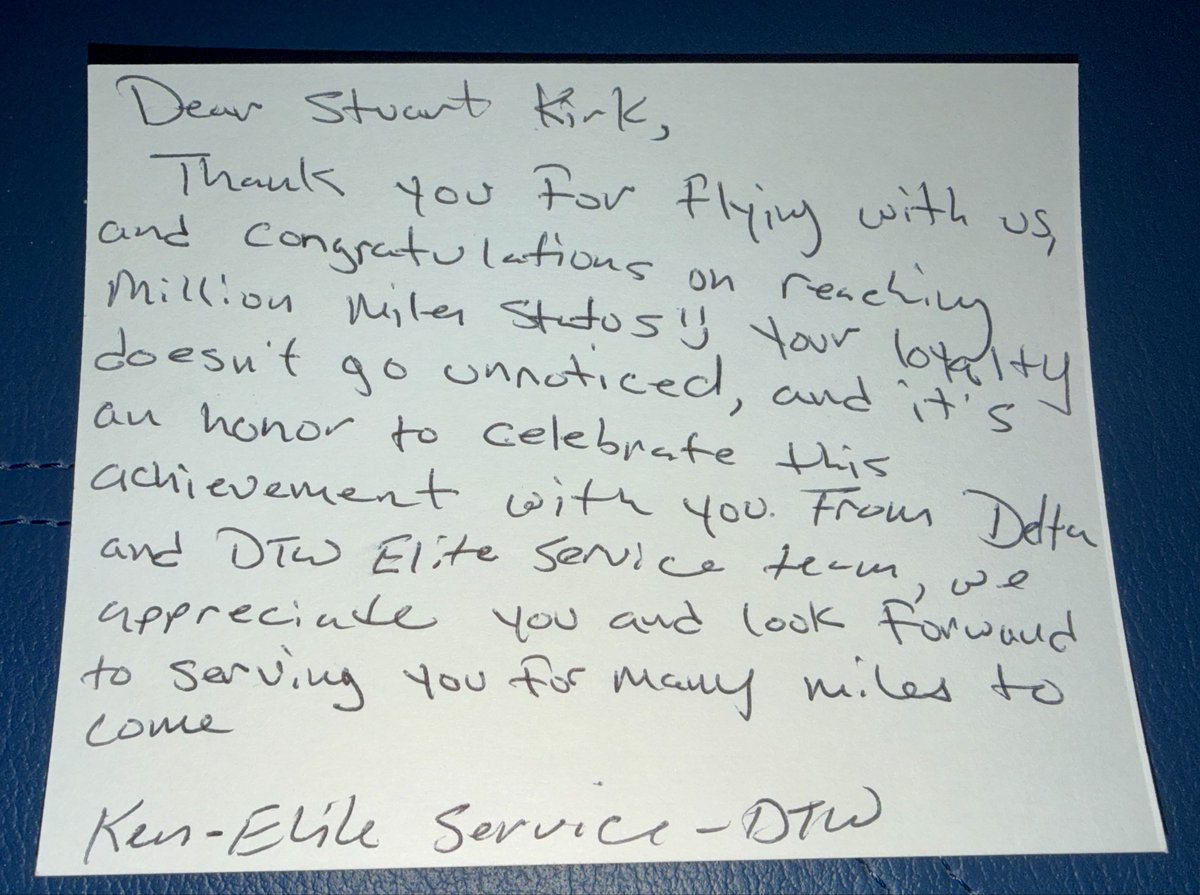 Dear Stuart Kirk,
Thank you For Flying with us,
and congratulations on reaching
Million Miler Status!! Your loyalty
doesn't go unnoticed, and it's
an honor to celebrate this
achievement with you. From Delta
and DTW Elite Service team, we
appreciate you and look Forward
to serving you For many miles to
come
Ken-Elite Service-DTW